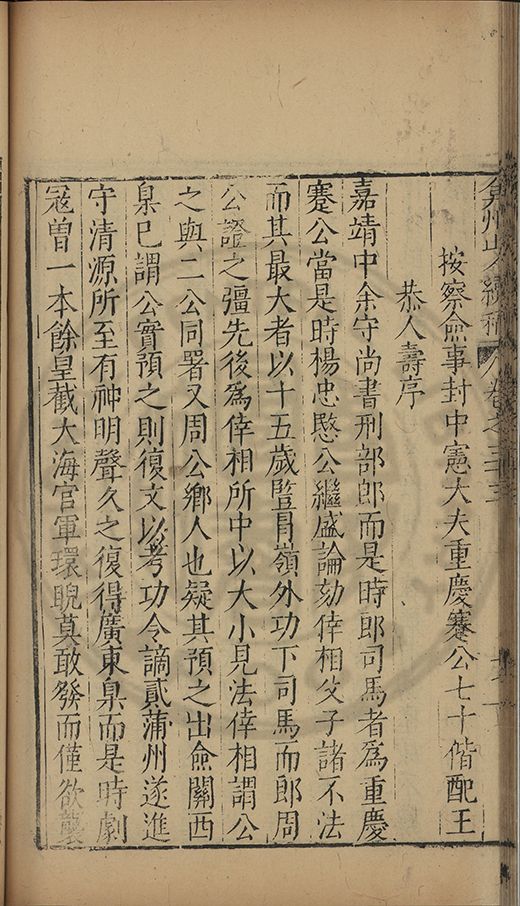 弇州山人續稿 卷之三十三
按察僉事封中憲大夫重慶蹇公七十偕配王
恭人壽序
嘉靖中余守尚書刑部郎而是時郎司馬者為重慶
蹇公當是時楊忠愍公繼盛論劾倖相父子諸不法
而其最大者以十五歲豎冐嶺外功下司馬而郎周
公證之彊先後為倖相所中以大小見法倖相謂公
之與二公同署又周公鄉人也疑其預之出僉關西
臬已謂公實預之則復文以考功令謫貳蒲州遂進
守清源所至有神明聲久之復得廣東臬而是時劇
寇曾一本餘皇截大海官軍環睨莫敢發而僅欲襲